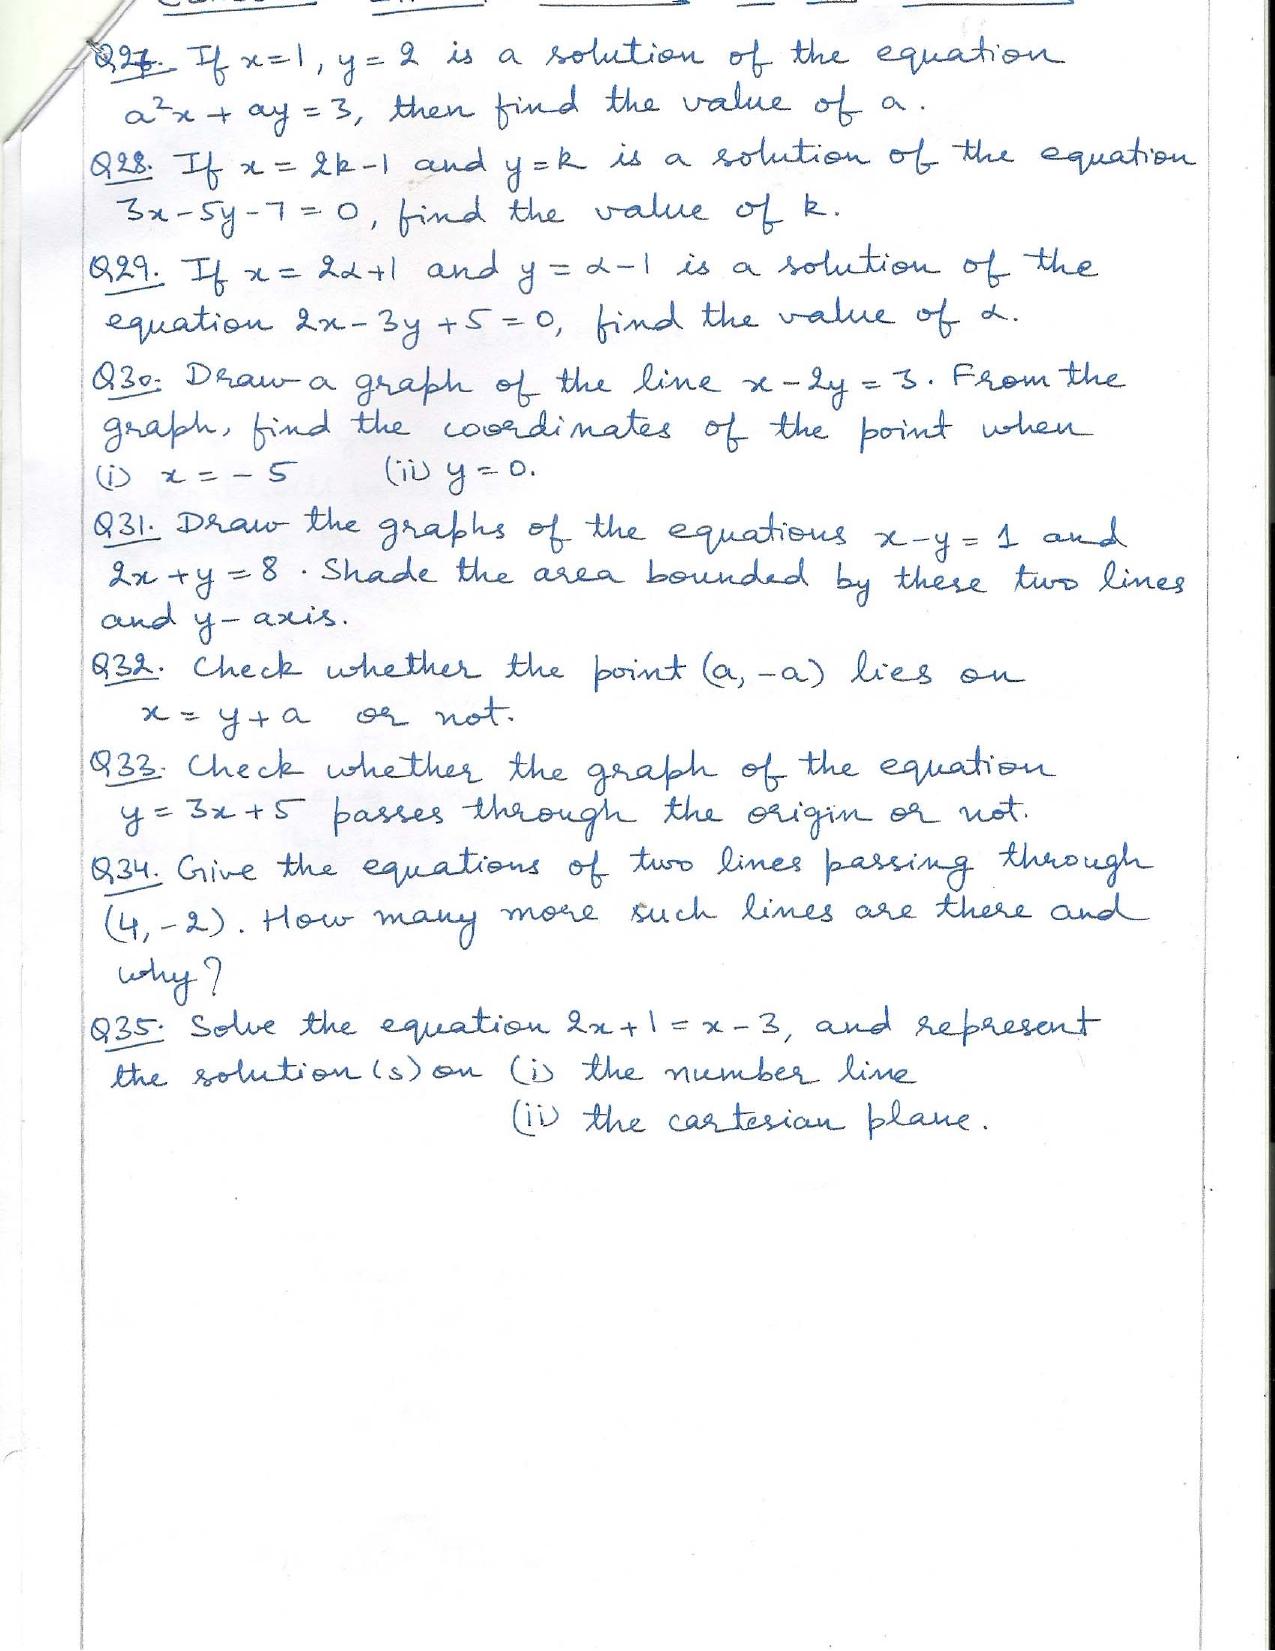 Q27. If x=1, y=2 is a solution of the equation
a²x + ay = 3, then find the value of a.
Q28. If x = 2k-1 and y=k is a solution of the equation
3x-5y-7=0, find the value of k.
Q29. If x = 2α+1 and y = α-1 is a solution of the
equation 2x-3y+5=0, find the value of α.
Q30. Draw a graph of the line x-2y=3. From the
graph, find the coordinates of the point when
(i) x = -5 (ii) y=0.
Q31. Draw the graphs of the equations x-y=1 and
2x+y=8. Shade the area bounded by these two lines
and y-axis.
Q32. Check whether the point (a, -a) lies on
x = y+a or not.
Q33. Check whether the graph of the equation
y = 3x+5 passes through the origin or not.
Q34. Give the equations of two lines passing through
(4,-2). How many more such lines are there and
why?
Q35. Solve the equation 2x+1=x-3, and represent
the solution(s) on (i) the number line
(ii) the cartesian plane.